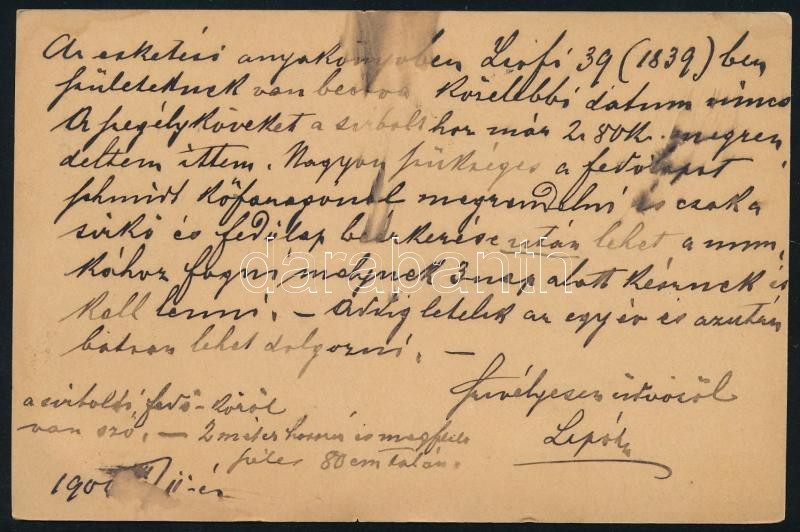 Az esketési anyakönyvben Zsófi 39 (1839) ben
születetnek van beirva közelebbi dátum nincs
A szegélyköveket a sirbolthoz már 2.80K. megren
deltem ittem. Nagyon szükséges a fedőlapot
Schmidt kőfaragónál megrendelni és csak a
sirkő és fedőlap beérkezése után lehet a mun
kához fogni melynek 3 nap alatt késznek is
kell lenni. – Addig letelik az egy év és azután
bátran lehet dolgozni. –
Szivélyesen üdvözöl
Lipót
a sirboltı fedő-kőről
van szó. – 2 méter hosszú is megfelelő
széles 80 cm talán.
11-én
darabanth